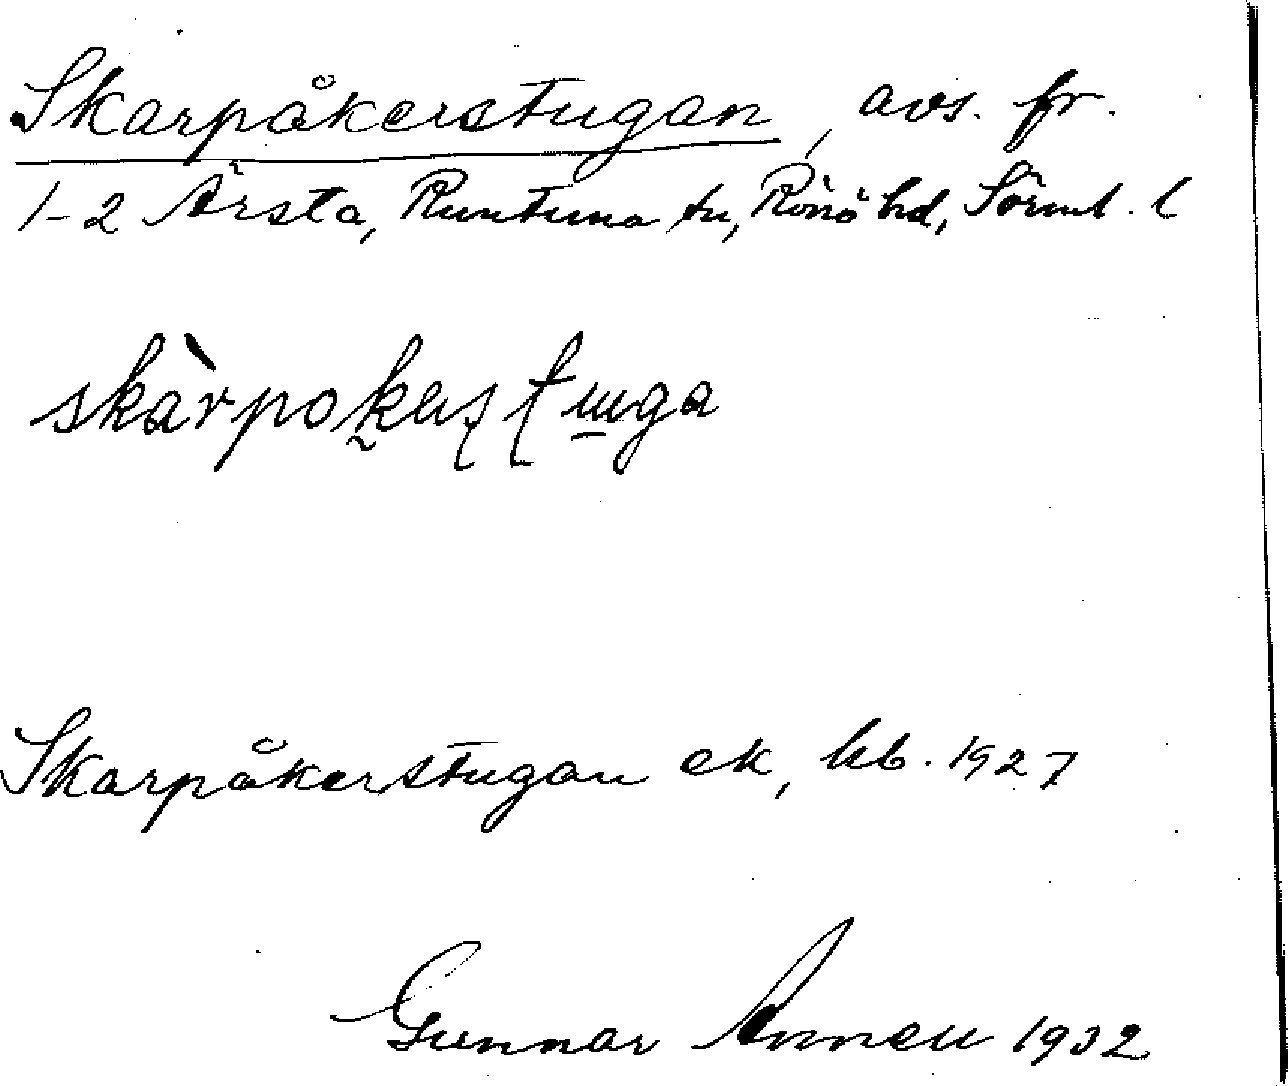 Skarpåkerstugan, avs. fr.
1-2 Årsta, Runtuna sn, Rönö hd, Sörml. l
skàrpokastuga
Skarpåkerstugan ek, hb. 1927
Gunnar 1932